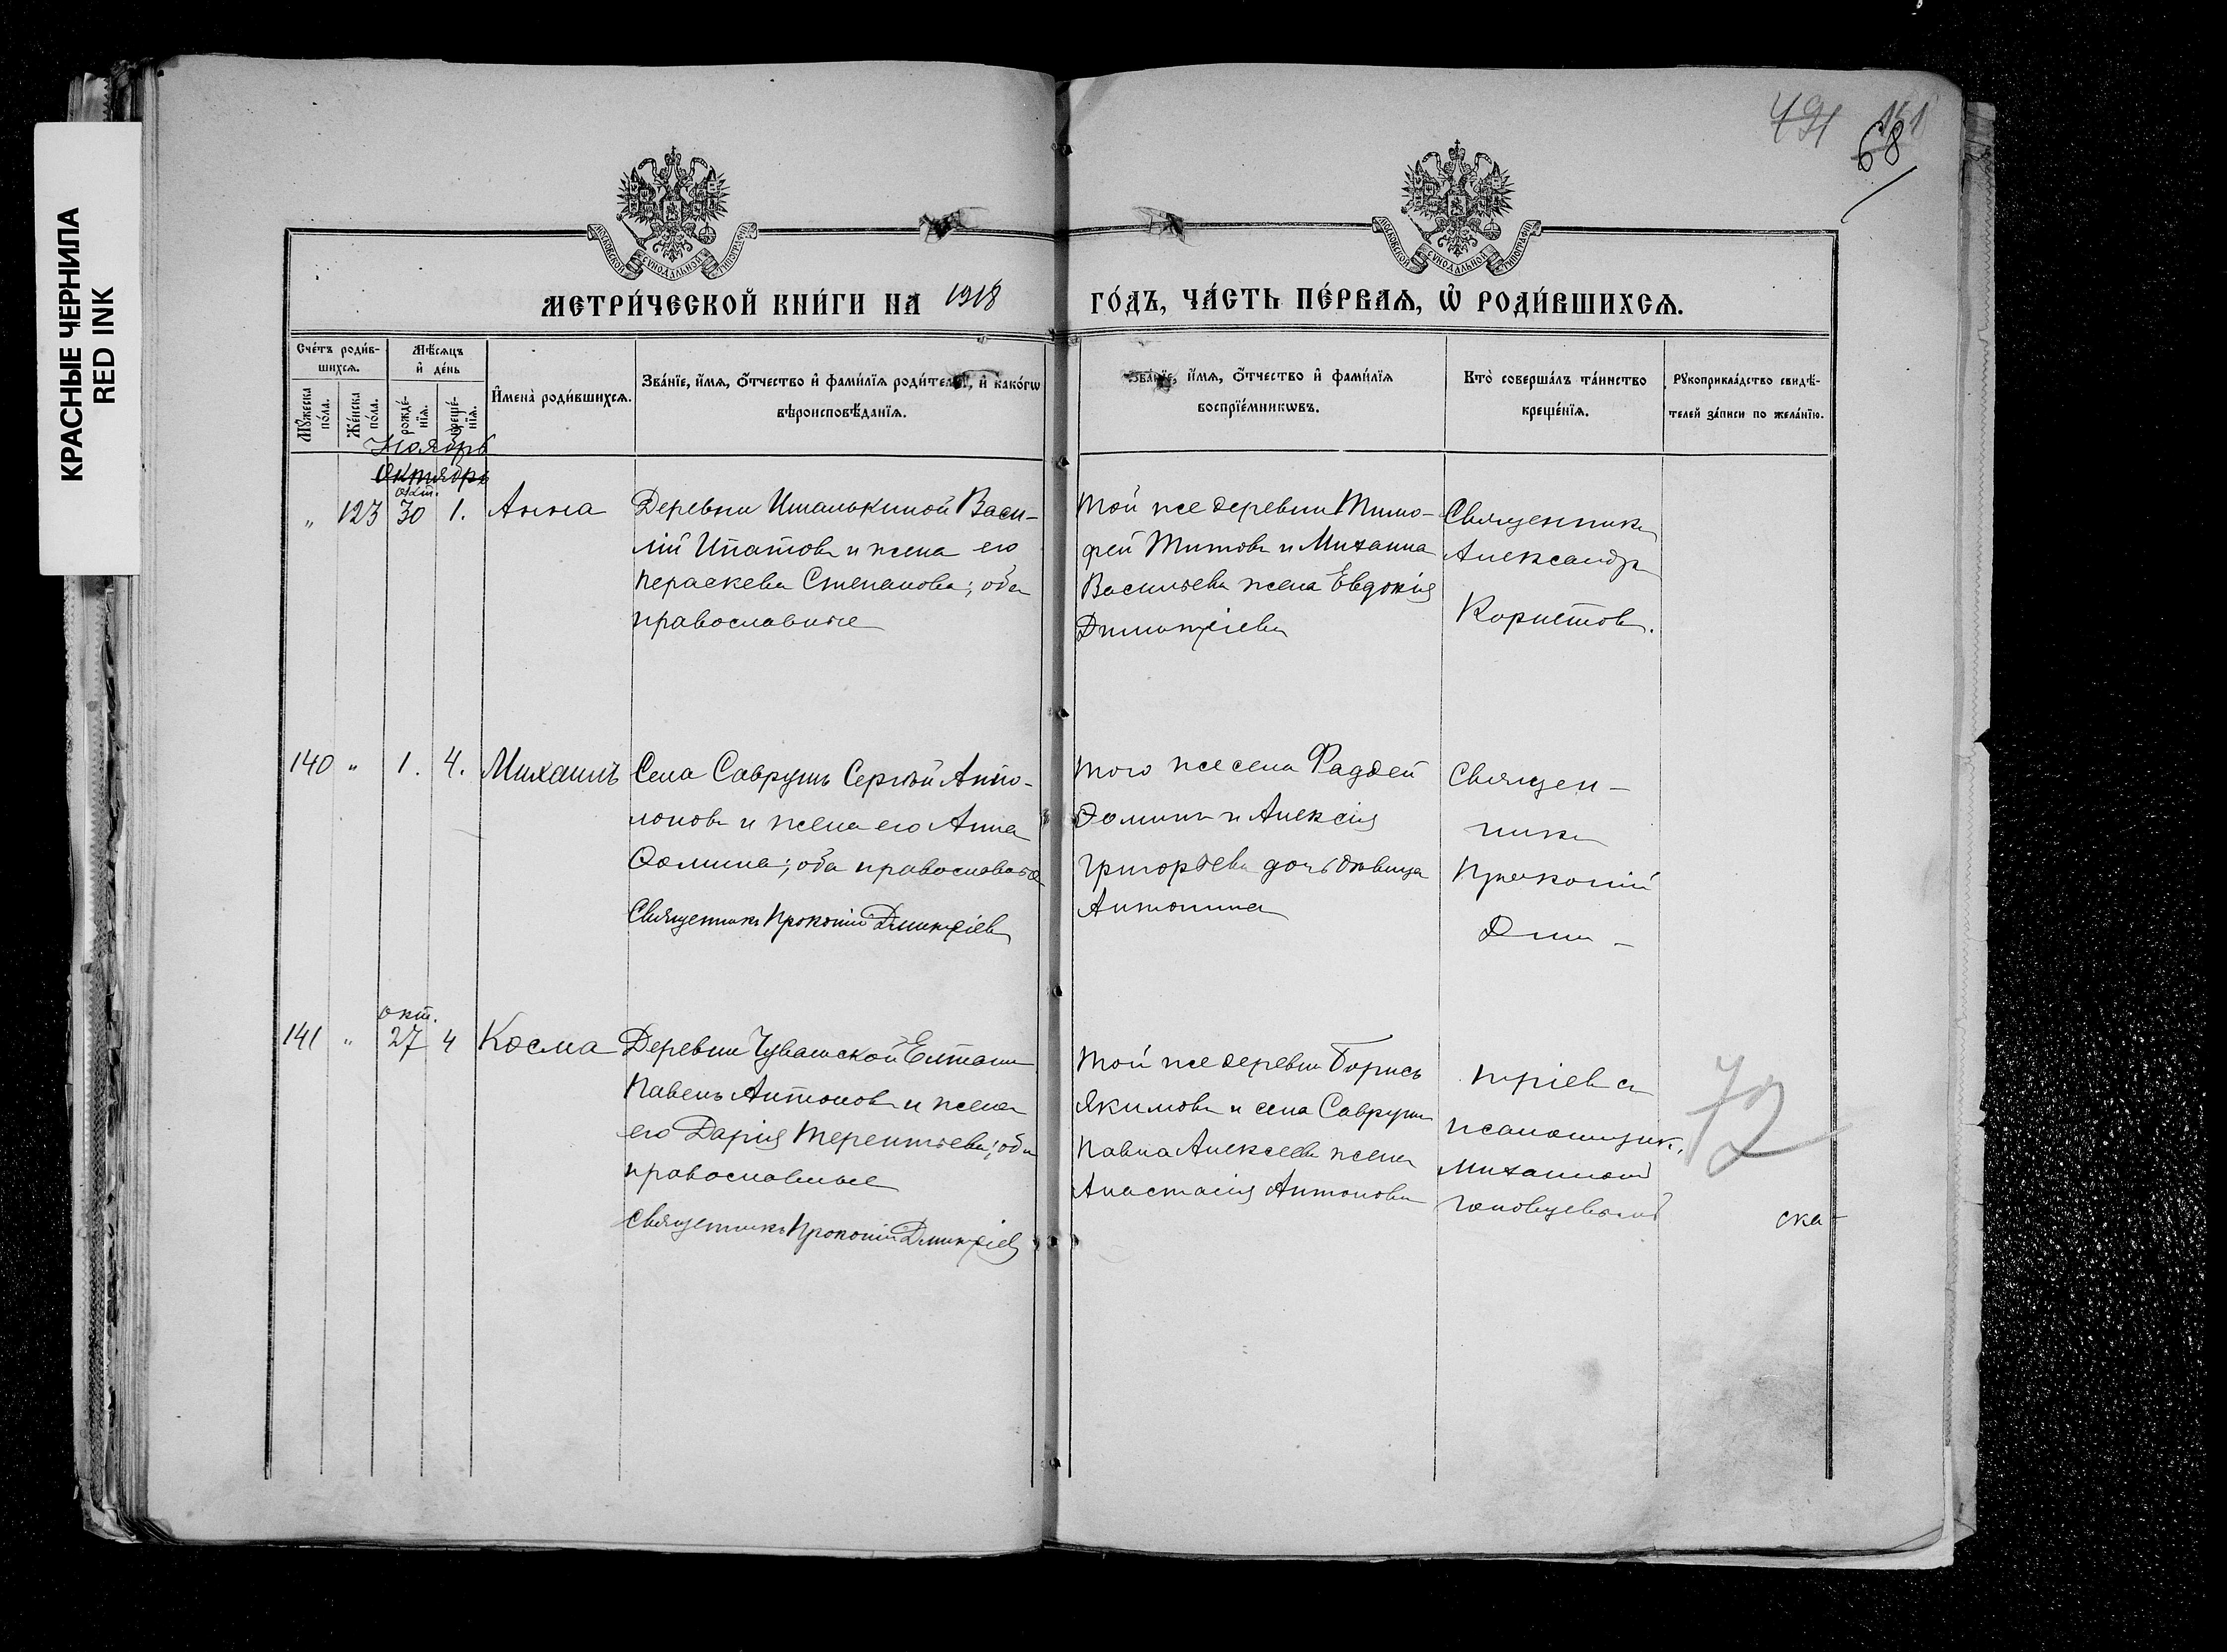 КРАСНЫЕ ЧЕРНИЛА
RED INK
491
68
МОСКОВСКОЙ СѴНОДАЛЬНОЙ ТИПОГРАФІИ
МОСКОВСКОЙ СѴНОДАЛЬНОЙ ТИПОГРАФІИ
МЕТРИ́ЧЕСКОЙ КНИ́ГИ НА 1918
ГО́ДЪ, ЧА́СТЬ ПЕ́РВАѦ, Ѡ҆ РОДИ́ВШИХСѦ.
Сче́тъ роди́в-
шихсѧ.
Мꙋ́жеска
по́ла.
Же́нска
по́ла.
Мѣ́сѧцъ
и҆ де́нь
рожде́-
нїѧ.
креще́-
нїѧ.
И҆мена̀ роди́вшихсѧ.
Зва́нїе, и҆́мѧ, ѻ҆́тчество и҆ фами́лїѧ роди́телей, и҆ како́гѡ
вѣроисповѣ́данїѧ.
Зва́нїе, и҆́мѧ, ѻ҆́тчество и҆ фами́лїѧ
воспрїе́мникѡвъ.
Кто̀ соверша́лъ та́инство
креще́нїѧ.
Рꙋкоприкла́дство свидѣ́-
телей за́писи по жела́нїю.
Ноябрь
Октябрь
окт.
„ 123 30 1. Анна
Деревни Ишалькиной Васи-
лій Ипатовъ и жена его
Параскева Степанова; оба
православные
Той же деревни Тимо-
фей Титовъ и Михаила
Васильева жена Евдокія
Димитріева
Священникъ
Александръ
Користовъ.
140 „ 1. 4. Михаилъ
Села Саврушъ Сергѣй Апо-
лоновъ и жена его Анна
Фомина; оба православные
Священникъ Прокопій Дмитріевъ
Того же села Фаддей
Фоминъ и Алексія
Григорьева дочь дѣвица
Антонина
Священ-
никъ
Прокопій
Дми-
окт.
141 „ 27 4 Косма
Деревни Чувашской Елтани
Павелъ Антоновъ и жена
его Дарія Терентьева; оба
православные
Священникъ Прокопій Дмитріевъ
Той же деревни Борисъ
Якимовъ и села Саврушъ
Павла Алексеева жена
Анастасія Антонова
тріевъ съ
псаломщик.
Михаиломъ
72
ска-